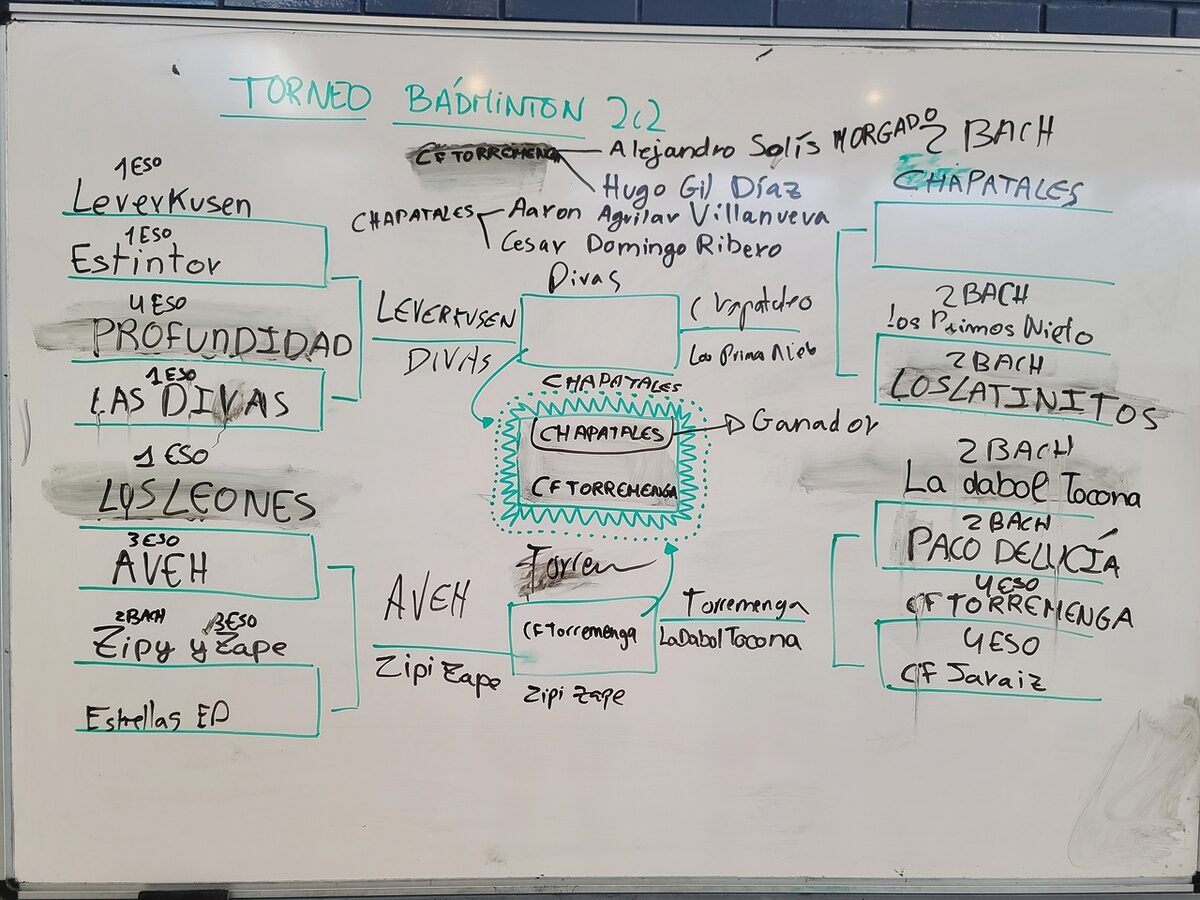 TORNEO BÁDMINTON 2c2
CF TORREMENGA
Alejandro Solís MORGADO
Hugo Gil Díaz
CHAPATALES
Aaron Aguilar Villanueva
Cesar Domingo Ribero
1 ESO
Leverkusen
1 ESO
Estintor
4 ESO
PROFUNDIDAD
1 ESO
LAS DIVAS
1 ESO
LOS LEONES
3 ESO
AVEH
2 BACH 3 ESO
Zipy y Zape
Estrellas EP
LEVERKUSEN
DIVAS
AVEH
Zipi Zape
Divas
CHAPATALES
CHAPATALES
Ganador
CF TORREMENGA
Torrem
CF Torremenga
Zipi Zape
Los Primo Nieto
Torremenga
La Dabol Tocona
2 BACH
CHAPATALES
2 BACH
Los Primos Nieto
2 BACH
LOS LATINITOS
2 BACH
La dabol Tocona
2 BACH
PACO DE LUCÍA
4 ESO
CF TORREMENGA
4 ESO
CF Jaraiz